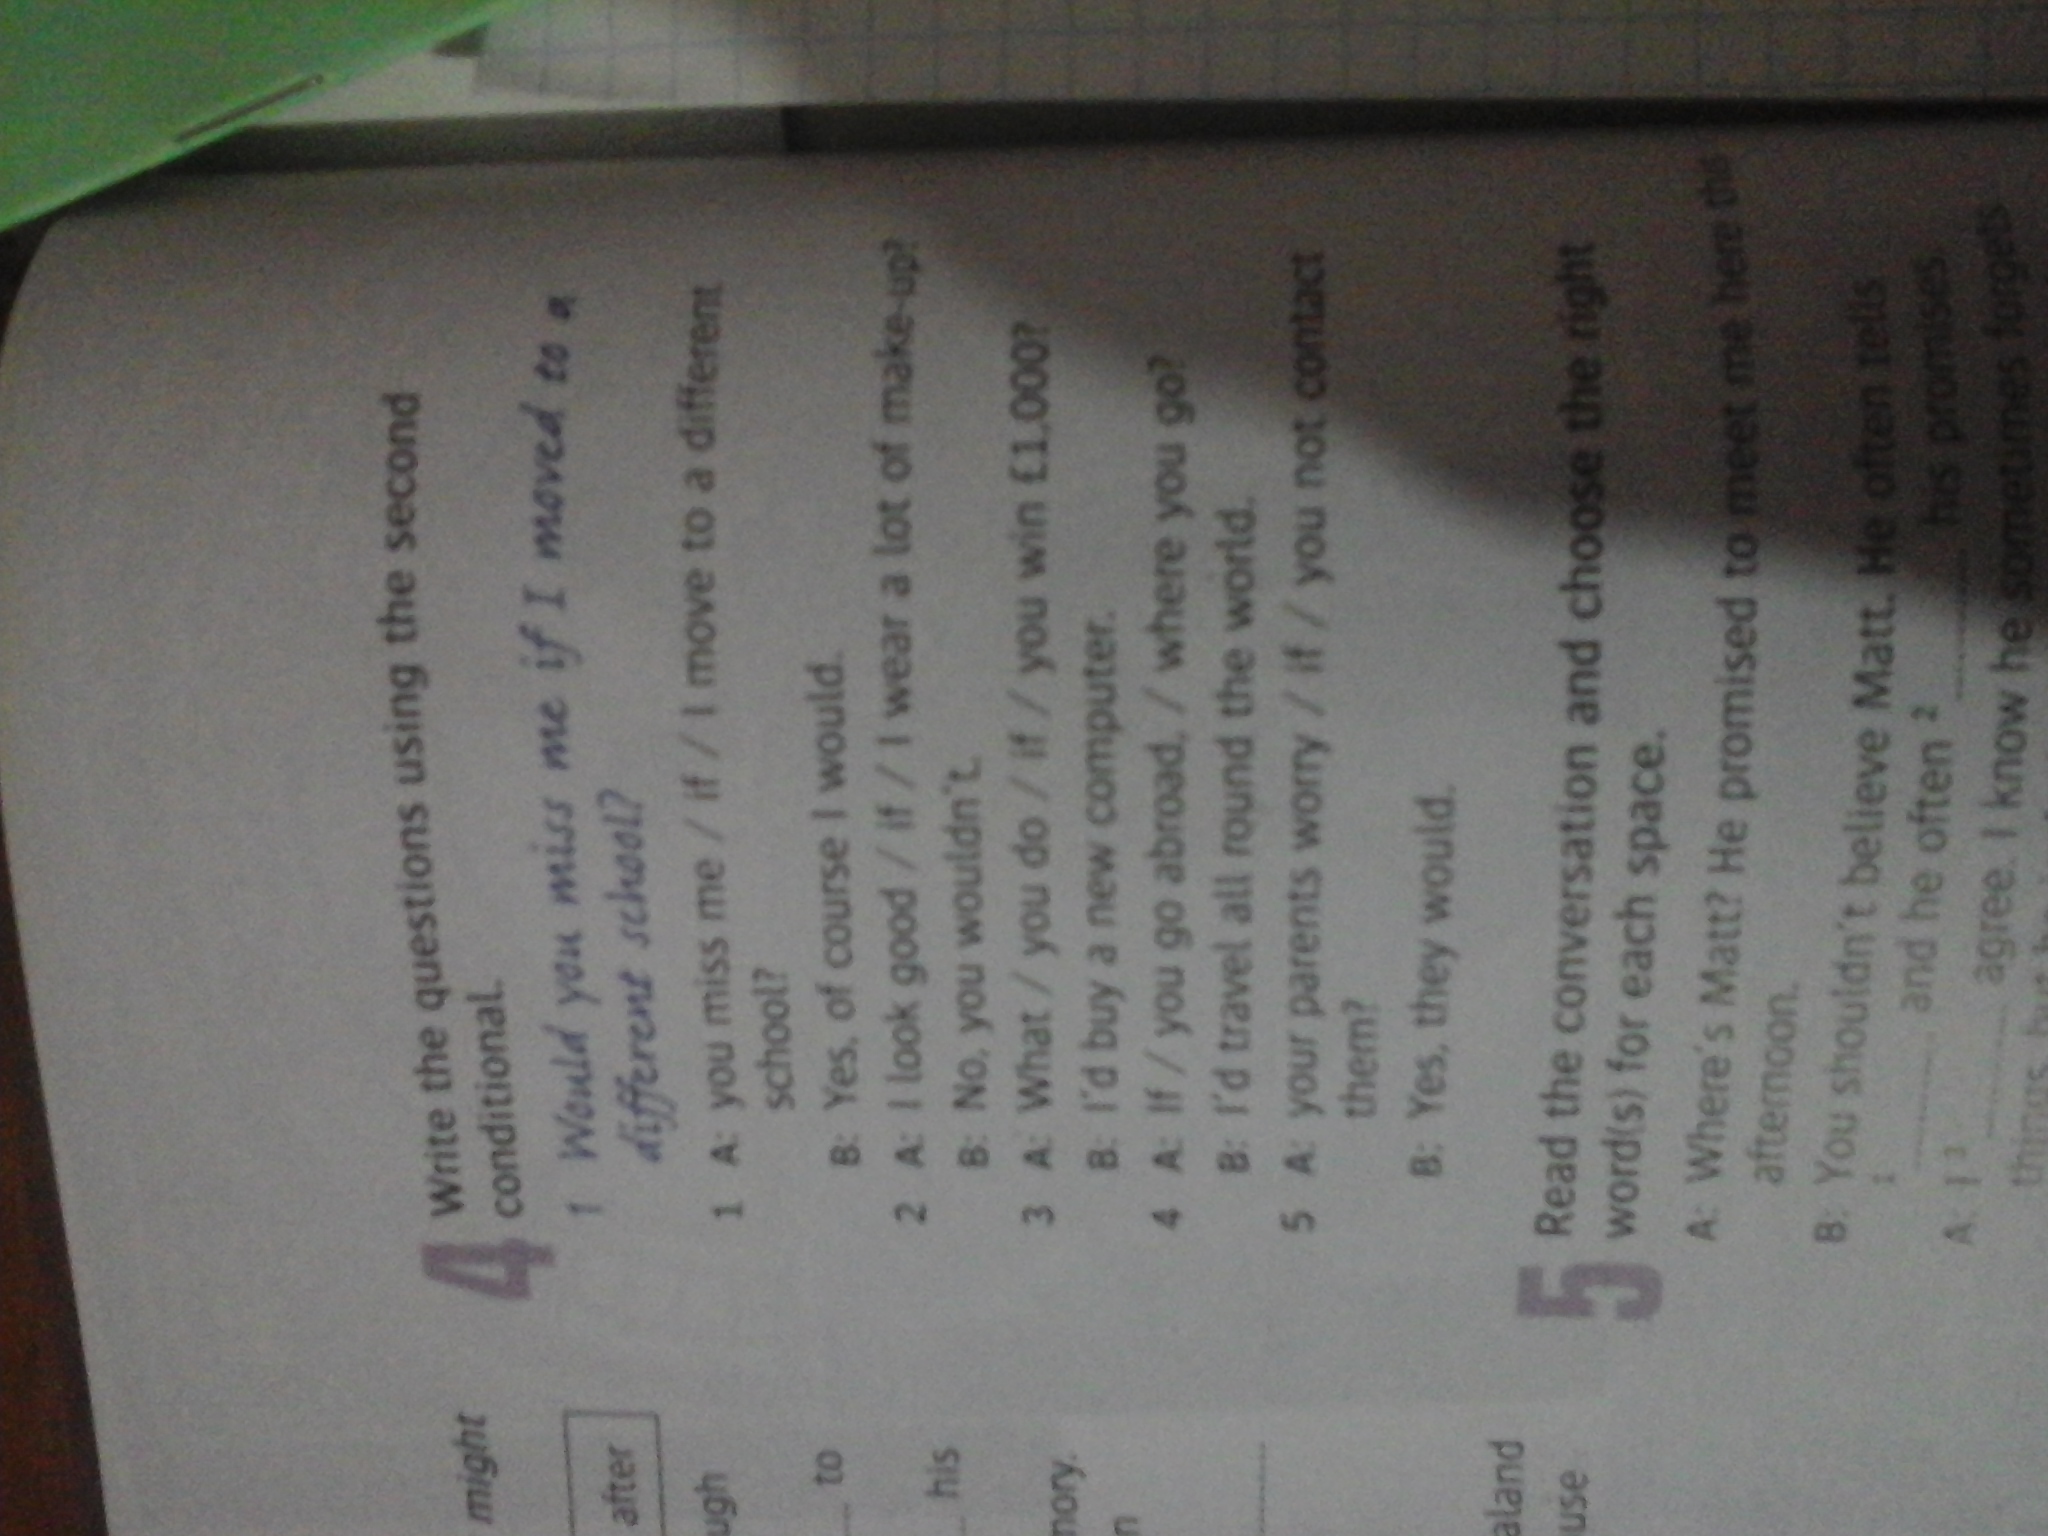 might
after
ugh
to
his
nory.
n
aland
use
4 Write the questions using the second
conditional.
1 Would you miss me if I moved to a
different school?
1 A: you miss me / if / I move to a different
school?
B: Yes, of course I would.
2 A: I look good / if / I wear a lot of make-up?
B: No, you wouldn't.
3 A: What / you do / if / you win £1,000?
B: I'd buy a new computer.
4 A: If / you go abroad, / where you go?
B: I'd travel all round the world.
5 A: your parents worry / if / you not contact
them?
B: Yes, they would.
5 Read the conversation and choose the right
word(s) for each space.
A: Where's Matt? He promised to meet me here this
afternoon.
B: You shouldn't believe Matt. He often tells
1 ______ and he often 2 ______ his promises
A: I 3 ______ agree. I know he sometimes forgets
things, but